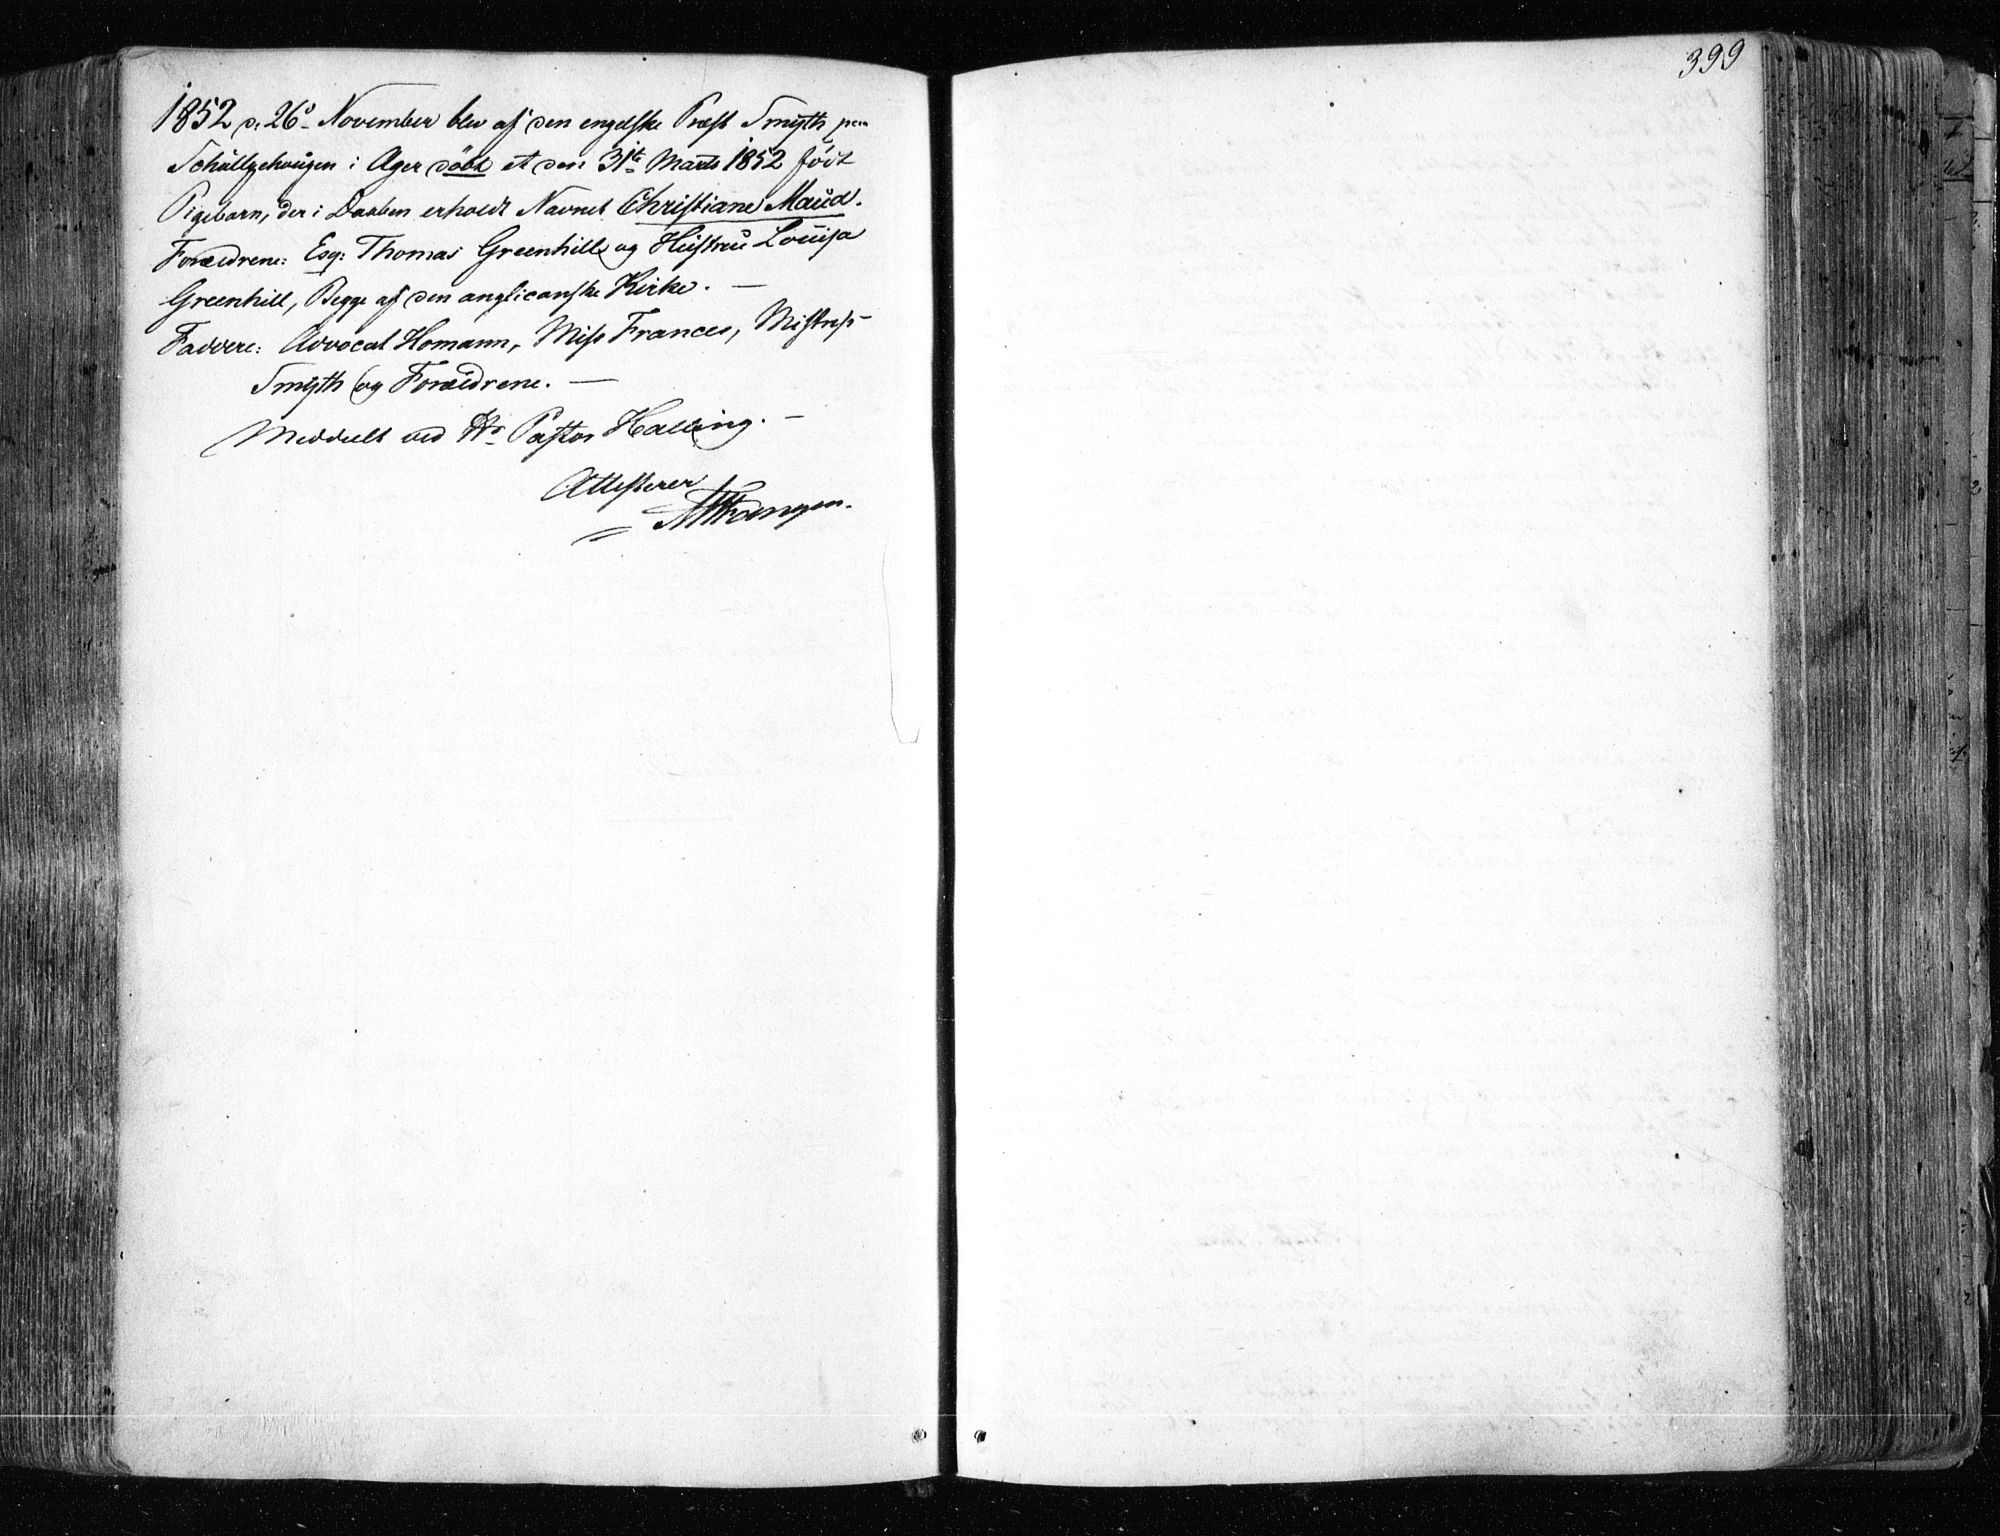 399
1852 d: 26° November blev af den engelske Præst Smyth paa
Schultzehougen i Ager döbt et den 31te Marts 1852 födt
Pigebarn, der i Daaben erholdt Navnet Christiane Maud.
Forældrene: Esq: Thomas Greenhill og Hustru Louisa
Greenhill, Begge af den anglicanske Kirke. —
Faddere: Advocat Homann, Miss Frances, Mistress
Smyth og Forældrene. —
Meddelt ved Hr Pastor Halling. —
Attesterer